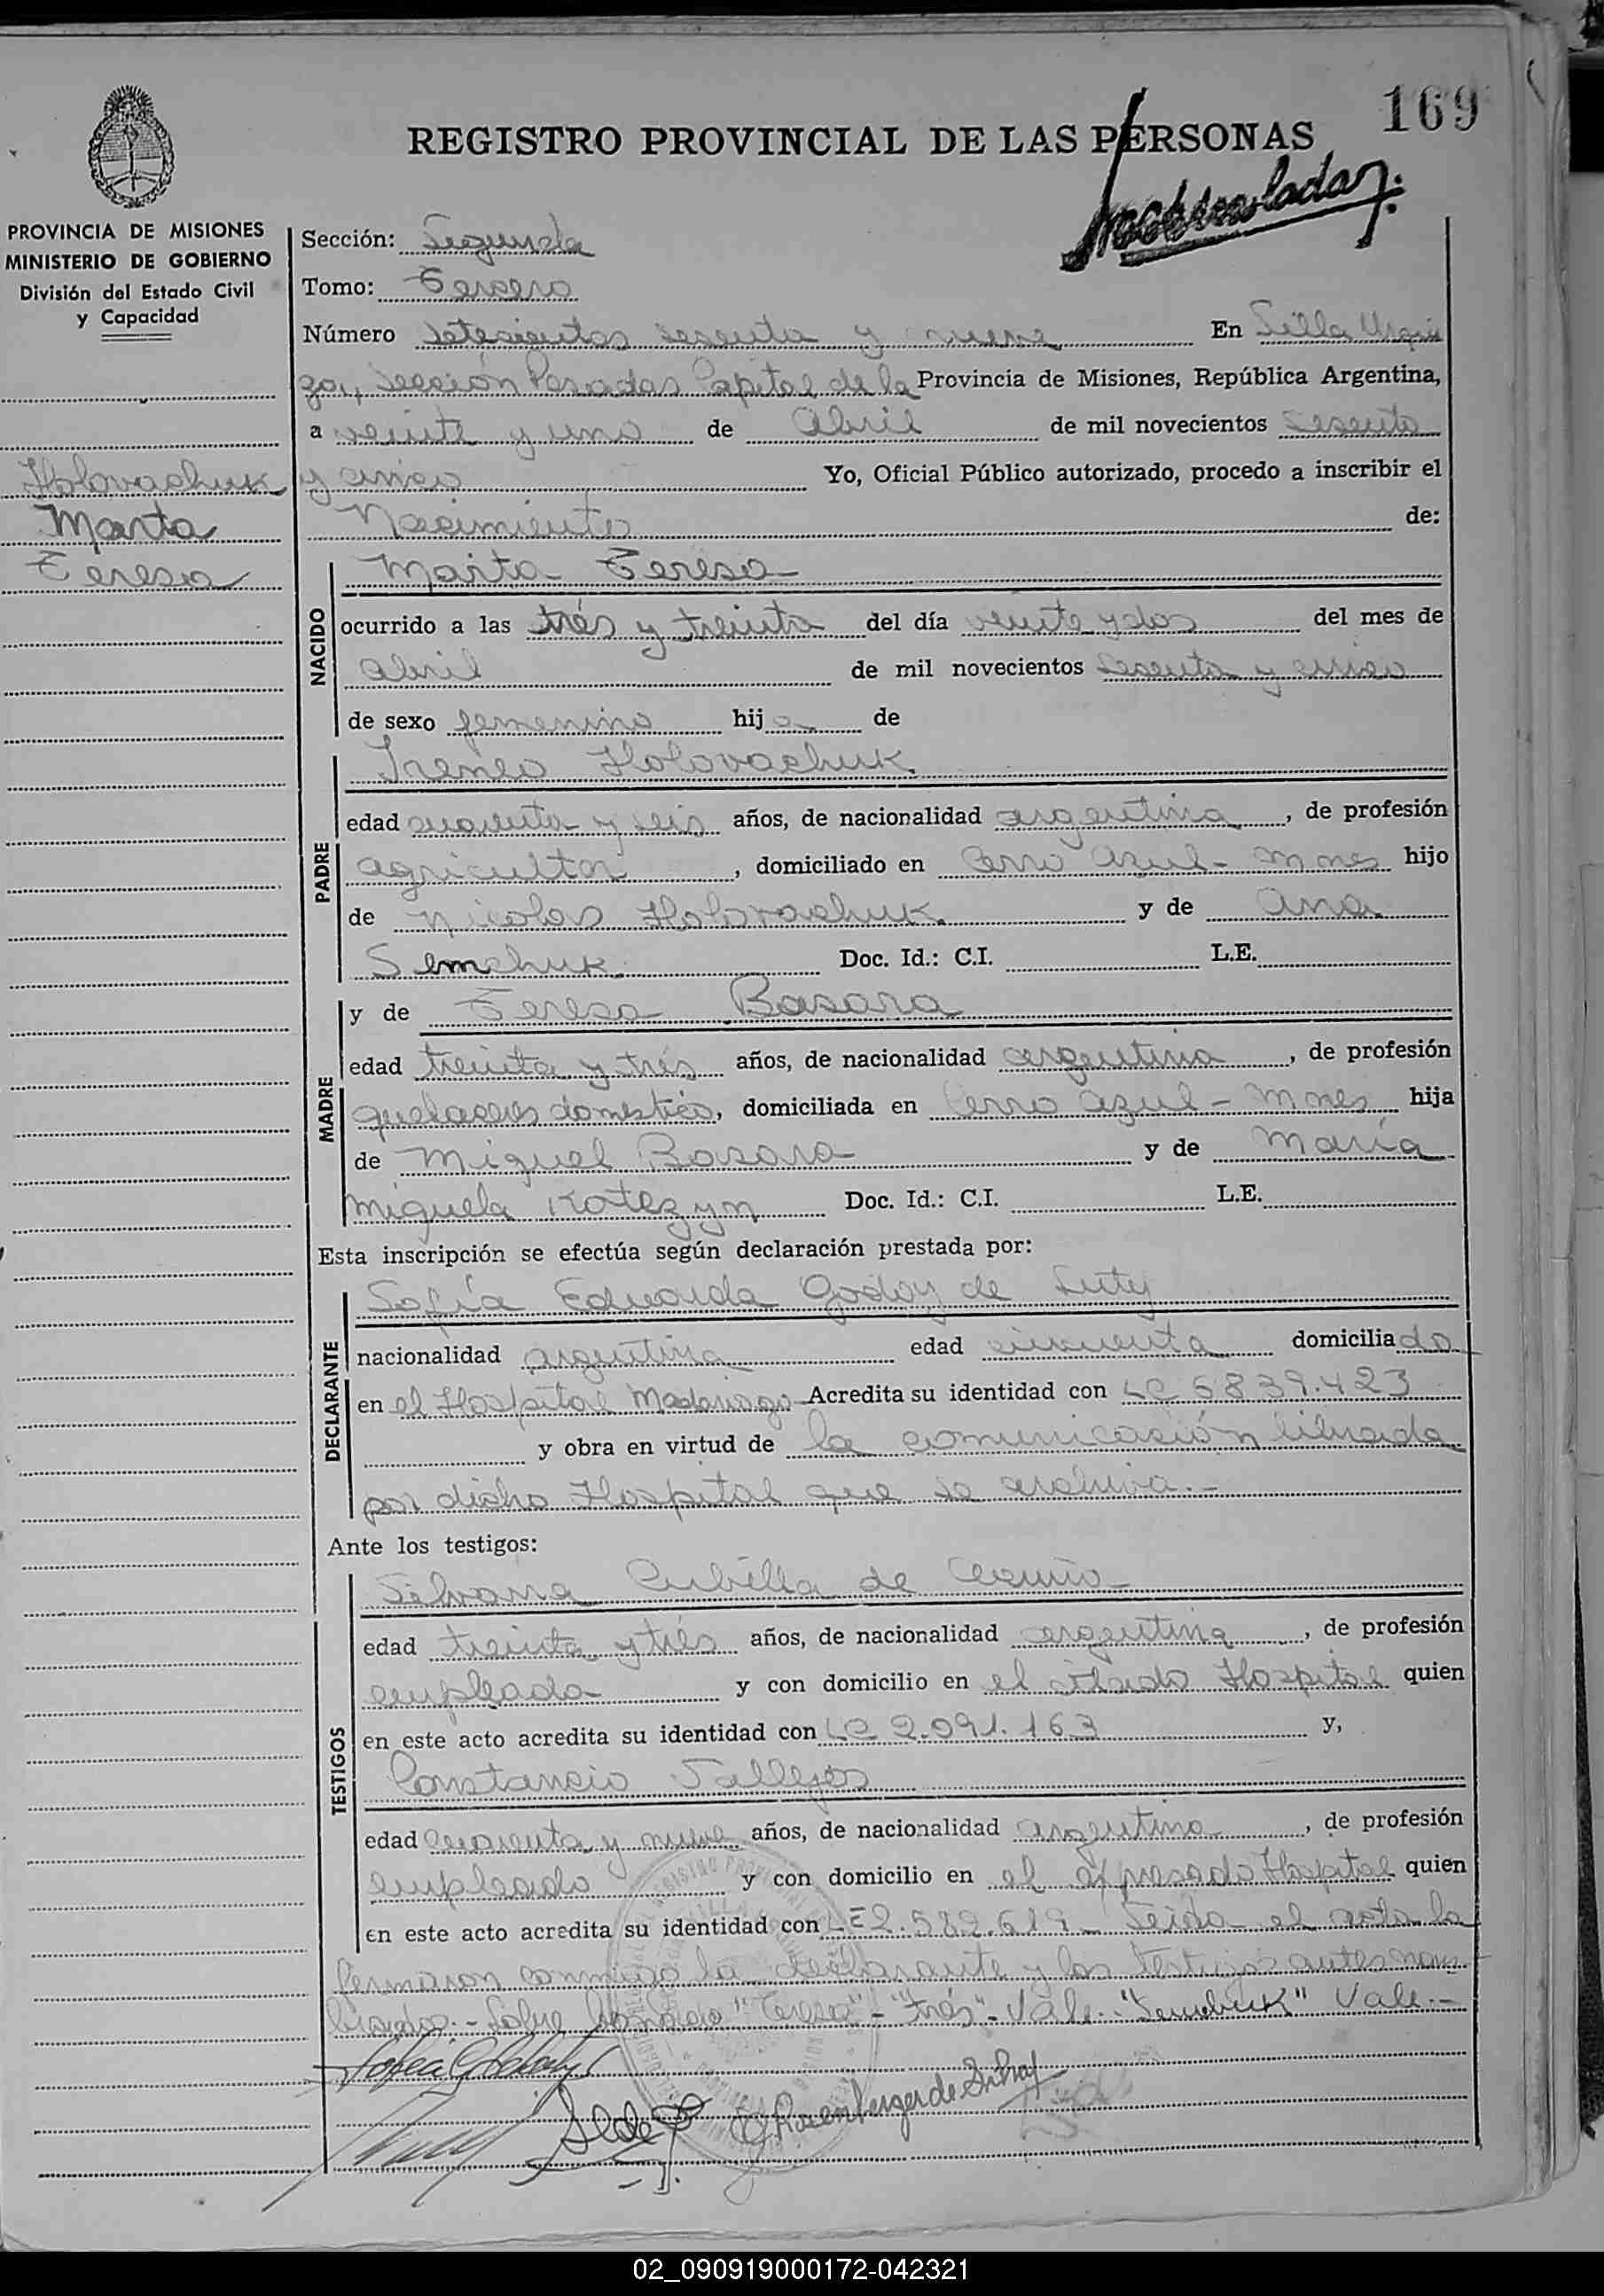 169
REGISTRO PROVINCIAL DE LAS PERSONAS
PROVINCIA DE MISIONES
MINISTERIO DE GOBIERNO
División del Estado Civil
y Capacidad
Holovachuk
Marta
Teresa
Sección: Segunda
Tomo: Tercero
Número setecientos sesenta y nueve En Villa Urqui
za, Sección Posadas Capital de la Provincia de Misiones, República Argentina,
a veinte y uno de Abril de mil novecientos sesenta
y cinco Yo, Oficial Público autorizado, procedo a inscribir el
Nacimiento de:
NACIDO
Marta Teresa
ocurrido a las trés y treinta del día veinte y dos del mes de
abril de mil novecientos sesenta y cinco
de sexo femenino hija de
PADRE
Ireneo Holovachuk
edad cuarenta y seis años, de nacionalidad argentina, de profesión
agricultor, domiciliado en Cerro Azul - Mnes hijo
de Nicolas Holovachuk y de Ana
Semchuk Doc. Id.: C.I. L.E.
MADRE
y de Teresa Basara
edad treinta y trés años, de nacionalidad argentina, de profesión
quehaceres domestico, domiciliada en Cerro Azul - Mnes hija
de Miguel Basara y de María
Miguela Kotezyn Doc. Id.: C.I. L.E.
Esta inscripción se efectúa según declaración prestada por:
DECLARANTE
Sofía Eduarda Godoy de
nacionalidad argentina edad cincuenta domiciliada
en el Hospital Madariaga Acredita su identidad con LC 5839.423
y obra en virtud de la comunicación librada
por dicho Hospital que se archiva.-
Ante los testigos:
TESTIGOS
Silvana Cubilla de
edad treinta y trés años, de nacionalidad argentina, de profesión
empleada y con domicilio en el citado Hospital quien
en este acto acredita su identidad con LC 2.091.163 y,
Constancio Vallejos
edad cuarenta y nueve años, de nacionalidad argentina, de profesión
empleado y con domicilio en el expresado Hospital quien
en este acto acredita su identidad con LE 2.582.619 - Leída el acta la
firmaron conmigo la declarante y los testigos antes nom
brados.- Sobre borrado "Teresa" - "trés" - Vale. "Semchuk" Vale.-
02_090919000172-042321